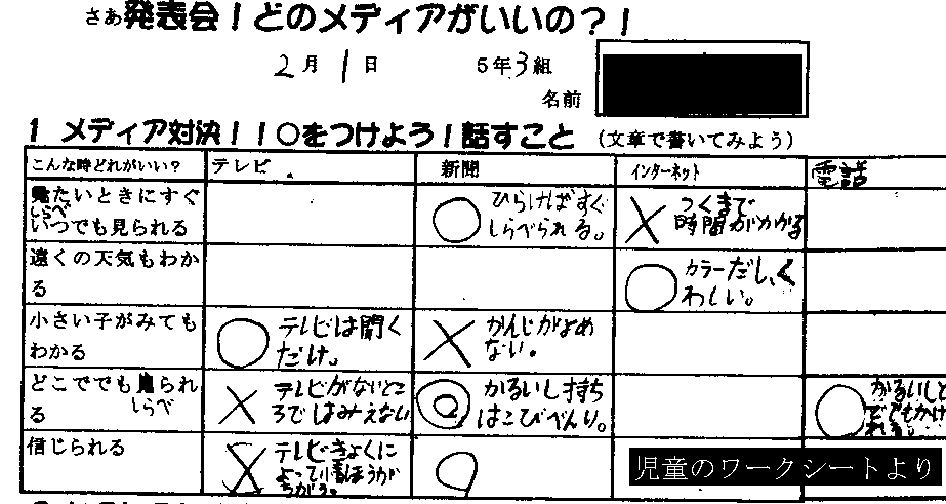 さあ発表会!どのメディアがいいの?!
2月1日 5年3組
名前
1 メディア対決!!○をつけよう!話すこと (文章で書いてみよう)
こんな時どれがいい? テレビ 新聞 インターネット 電話
見たいときにすぐ
しらべ
いつでも見られる
○ ひらけばすぐ
しらべられる。
× つくまで
時間がかかる
遠くの天気もわか
る
○ カラーだし、く
わしい。
小さい子がみても
わかる
○ テレビは聞く
だけ。
× かんじがよめ
ない。
どこででも見られ
る しらべ
× テレビがないとこ
ろではみえない
◎ かるいし持ち
はこびべんり。
○ かるいしど
でもかけ
れる。
信じられる
× テレビきょくに
よって
ちがう。
○
児童のワークシートより